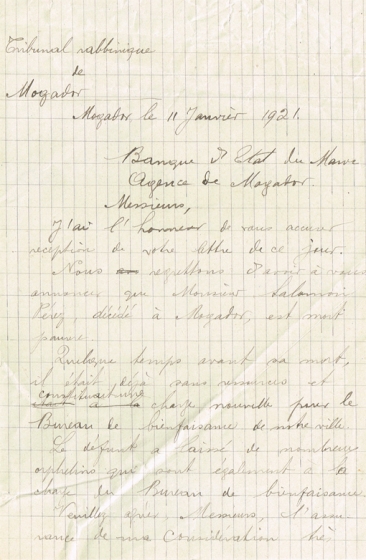 Tribunal rabbinique
de
Mogador
Mogador le 11 Janvier 1921.
Banque d'Etat du Maroc
Agence de Mogador.
Messieurs,
J'ai l'honneur de vous accuser
reception de votre lettre de ce jour.
Nous regrettons d'avoir à vous
annoncer que Monsieur Salomon
Pérez, décédé à Mogador, est mort
pauvre.
Quelque temps avant sa mort,
il était déjà sans ressources et
constituait une
à la charge nouvelle pour le
Bureau de bienfaisance de notre ville.
Le defunt a laissé de nombreux
orphelins qui sont également à la
charge du Bureau de bienfaisance.
Veuillez agréer, Messieurs, l'assu
rance de ma consideration très